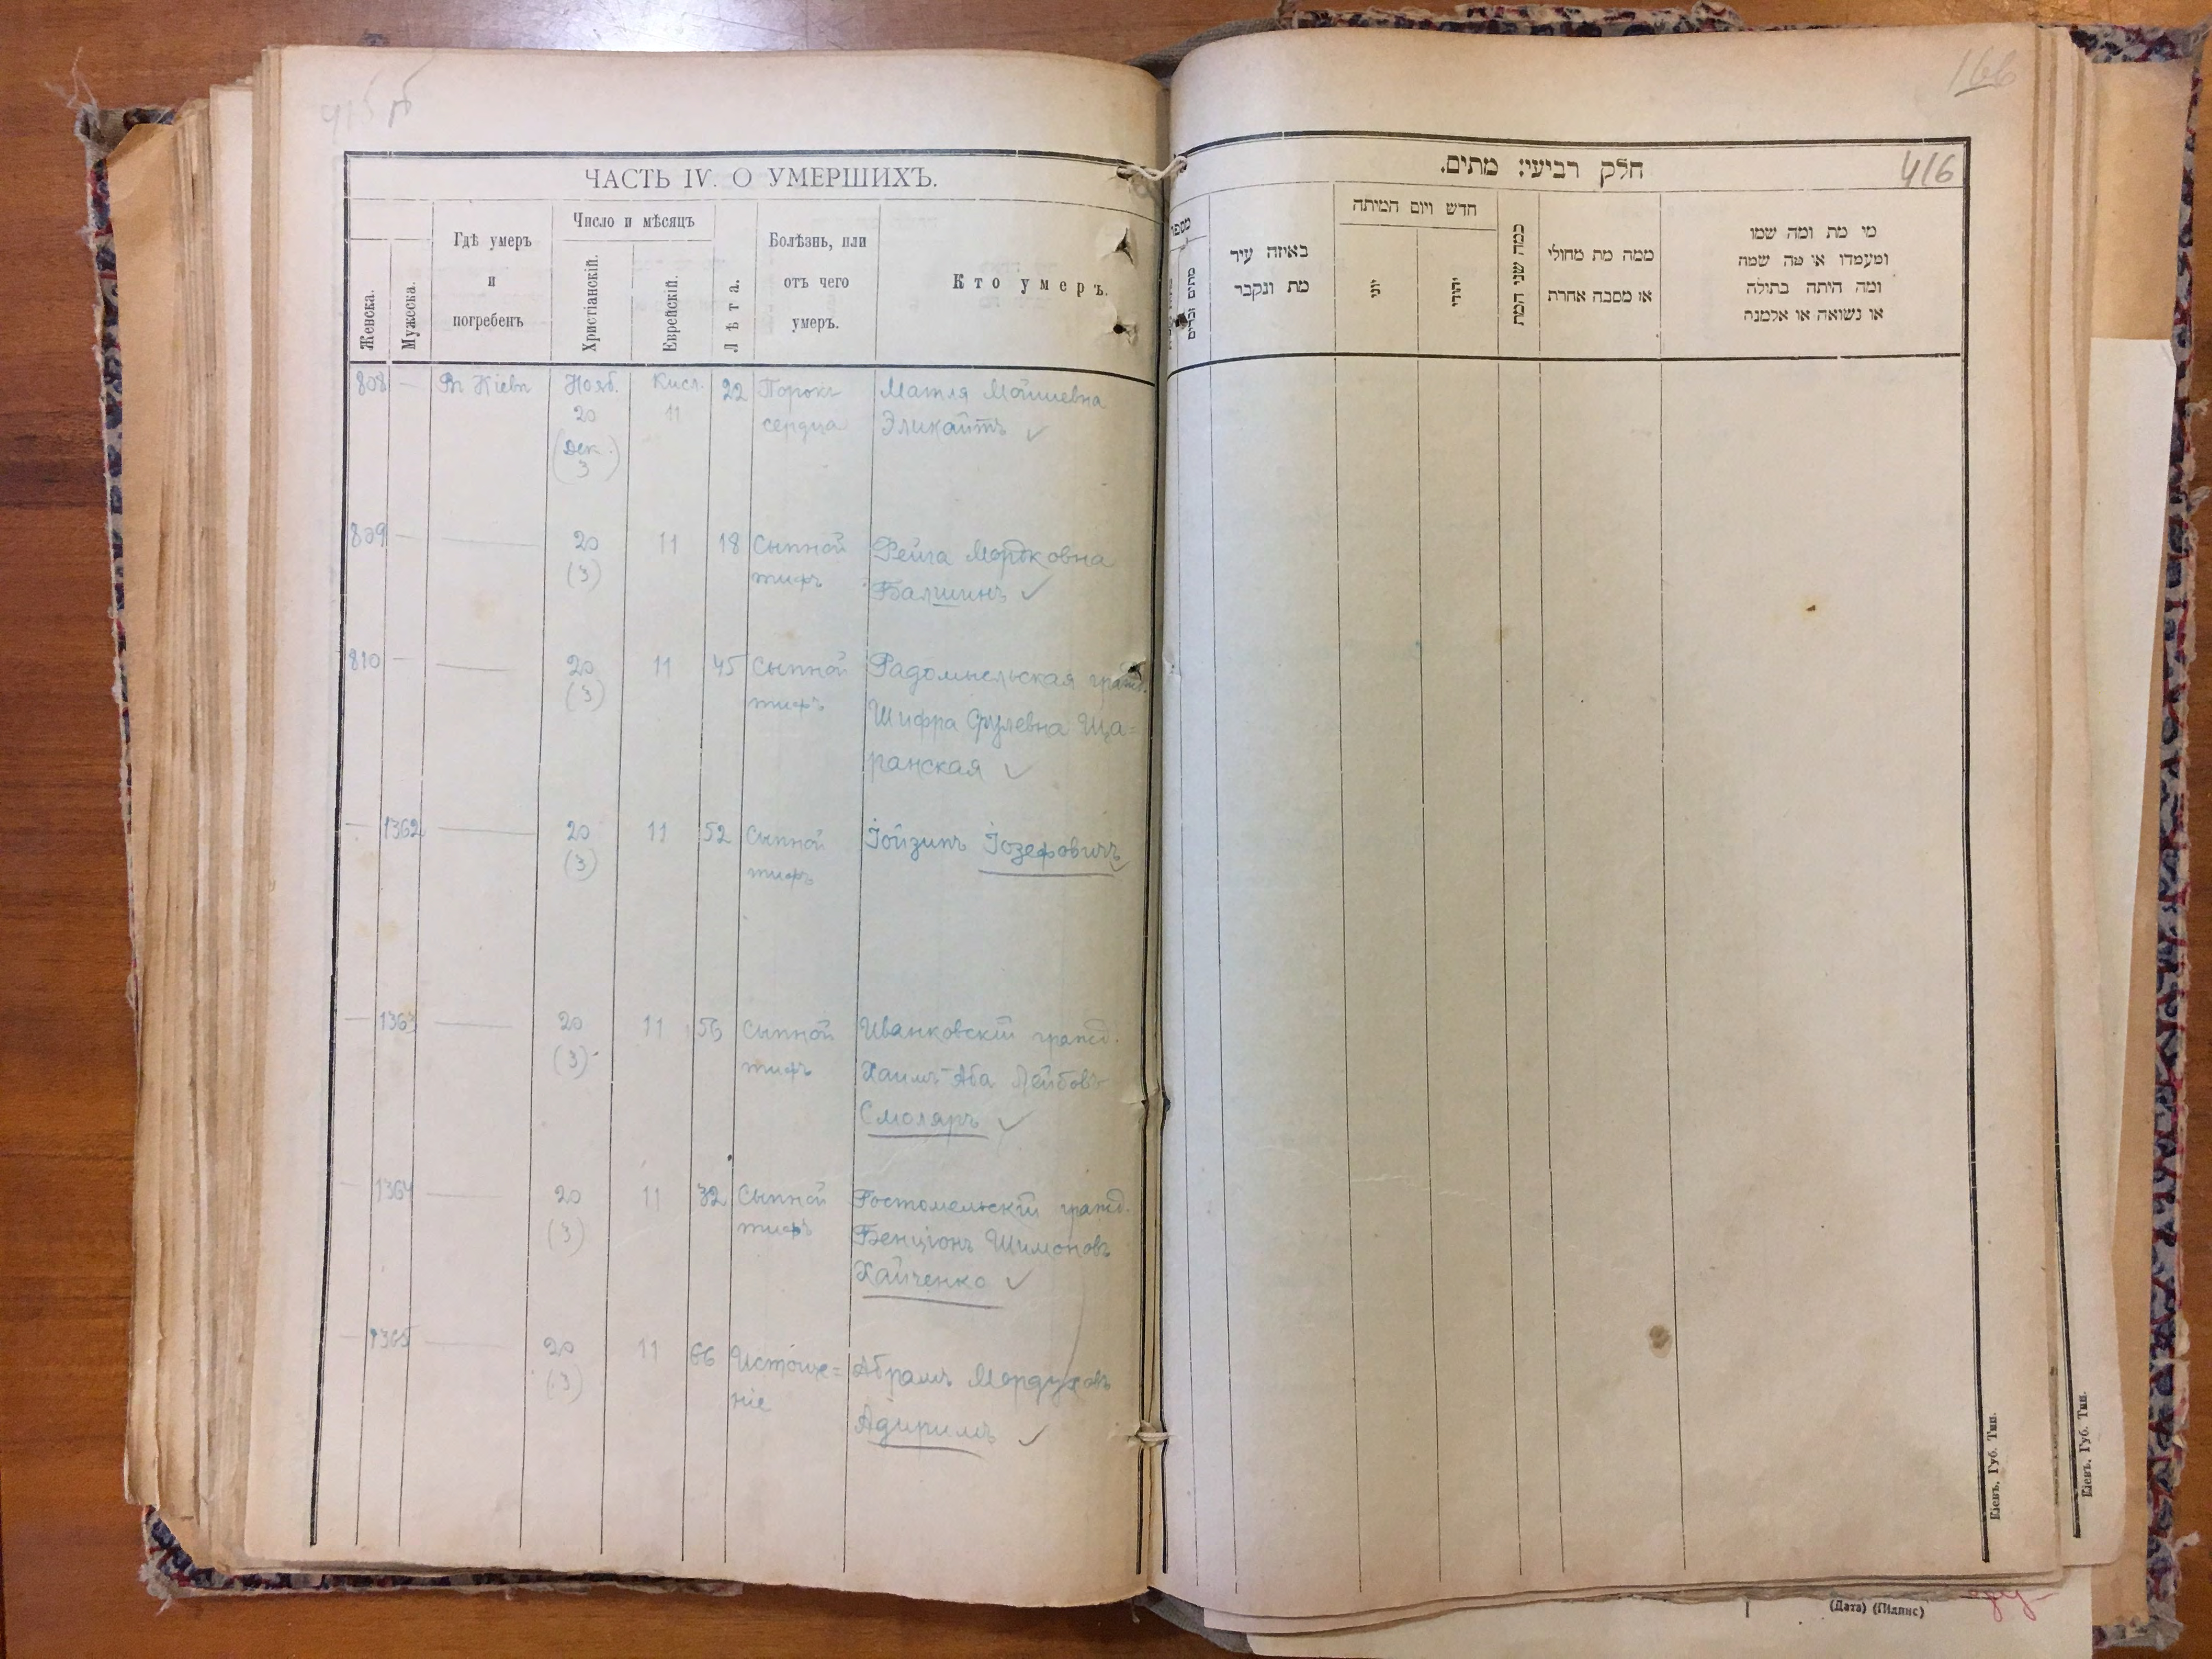 415 об
ЧАСТЬ IV. О УМЕРШИХЪ.
Женска.
Мужеска.
Гдѣ умеръ
и
погребенъ
Число и мѣсяцъ
Христіанскій.
Еврейскій.
Лѣта.
Болѣзнь, или
отъ чего
умеръ.
Кто умеръ.
808 — Въ Кіевѣ Нояб. Кисл. 22 Порокъ Матля Мойшевна
20 11 сердца Эликайтъ ✓
(Дек.
3)
809 — — 20 11 18 Сыпной Фейга Мордковна
(3) тифъ Балшинъ ✓
810 — — 20 11 45 Сыпной Радомысльская гражд.
(3) тифъ Шифра Срулевна Ща=
ранская ✓
— 1362 — 20 11 52 Сыпной Іойзипъ Іозефовичъ
(3) тифъ
— 1363 — 20 11 56 Сыпной Иванковскій гражд.
(3) тифъ Хаимъ-Аба Лейбовъ
Смоляръ ✓
— 1364 — 20 11 32 Сыпной Гостомельскій гражд.
(3) тифъ Бенціонъ Шимоновъ
Хайченко ✓
— 1365 — 20 11 66 Истоще= Абрамъ Мордуховъ
(3) ніе Адиримъ ✓
166
416
חלק רביעי: מתים.
מספר
מתים זכרים
באיזה עיר
מת ונקבר
חדש ויום המיתה
יוני
יהודי
כמה שני המת
ממה מת מחולי
או מסבה אחרת
מי מת ומה שמו
ומעמדו או מה שמה
ומה היתה בתולה
או נשואה או אלמנה
Кіевъ, Губ. Тип.
Кіевъ, Губ. Тип.
(Дата) (Підпис)